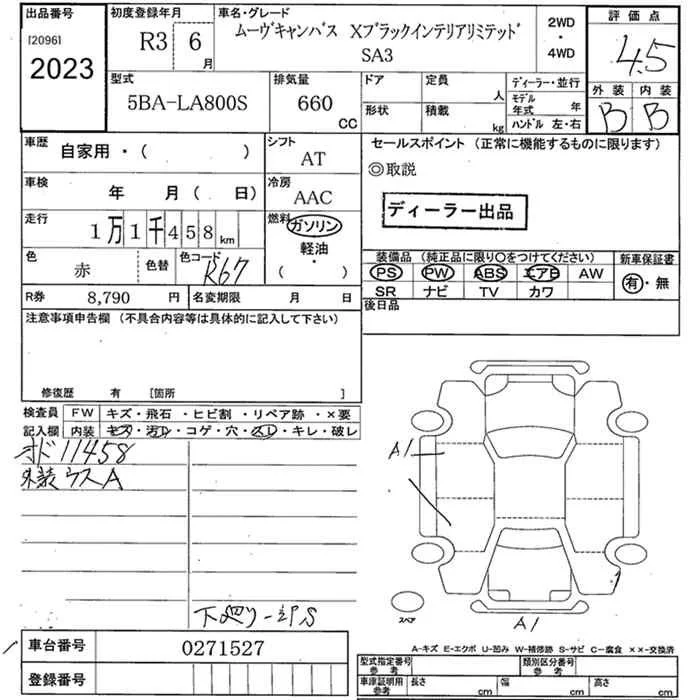 出品番号 初度登録年月 車名・グレード 2WD・4WD 評価点
[2096]
2023 R3 6月 ムーヴキャンバス Xブラックインテリアリミテッド SA3 4.5
型式 排気量 ドア 定員 人 ディーラー・並行 外装 内装
5BA-LA800S 660 CC 形状 積載 kg モデル年式 年 ハンドル 左・右 B B
車歴 自家用・( ) シフト AT セールスポイント (正常に機能するものに限ります)
◎取説
車検 年 月( 日) 冷房 AAC
ディーラー出品
走行 1万1千458km 燃料 ガソリン
軽油・
( )
色 赤 色替 色コード R67
装備品 (純正品に限り○をつけてください) 新車保証書
PS PW ABS エアB AW 有・無
SR ナビ TV カワ
R券 8,790 円 名変期限 月 日 後日品
注意事項申告欄 (不具合内容等は具体的に記入して下さい)
修復歴 有 [箇所 ]
検査員 FW キズ・飛石・ヒビ割・リペア跡・×要
記入欄 内装 キズ・汚レ・コゲ・穴・スレ・キレ・破レ
オド11458
外装ウスA
A1
下廻り一部S
スペア
A1
A-キズ E-エクボ U-凹み W-補修跡 S-サビ C-腐食 ××-交換済
車台番号 0271527
登録番号
型式指定番号 参考 類別区分番号 参考
車庫証明用 参考 長さ cm 幅 cm 高さ cm